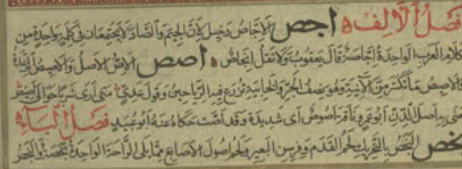 فصل الألف اجص الاجاص دخيل لان الجيم والصاد لا يجتمعان في كلمة واحدة من
كلام العرب الواحدة اجاصة قال يعقوب ولا تقل انجاص اصص الاص الاصل والاصيص
والاصيص ما تكسر من الآنية وهو نصف الجر والخابية تزرع فيه الرياحين وقول عدي متى ارى شربا حوالي اصيص
يعني به اصل الدن ابو عمرو ناقة اصوص اي شديدة وقد اصت حكاه عنه ابو عبيد فصل الباء
بخص البخص بالتحريك لحم القدم وفرسن البعير ولحم اصول الاصابع مما يلي الراحة الواحدة بخصة والبخص